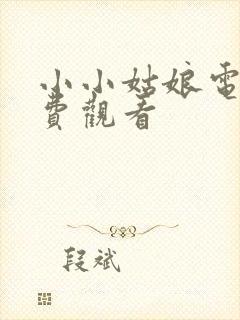 小小姑娘電
費觀看
段斌